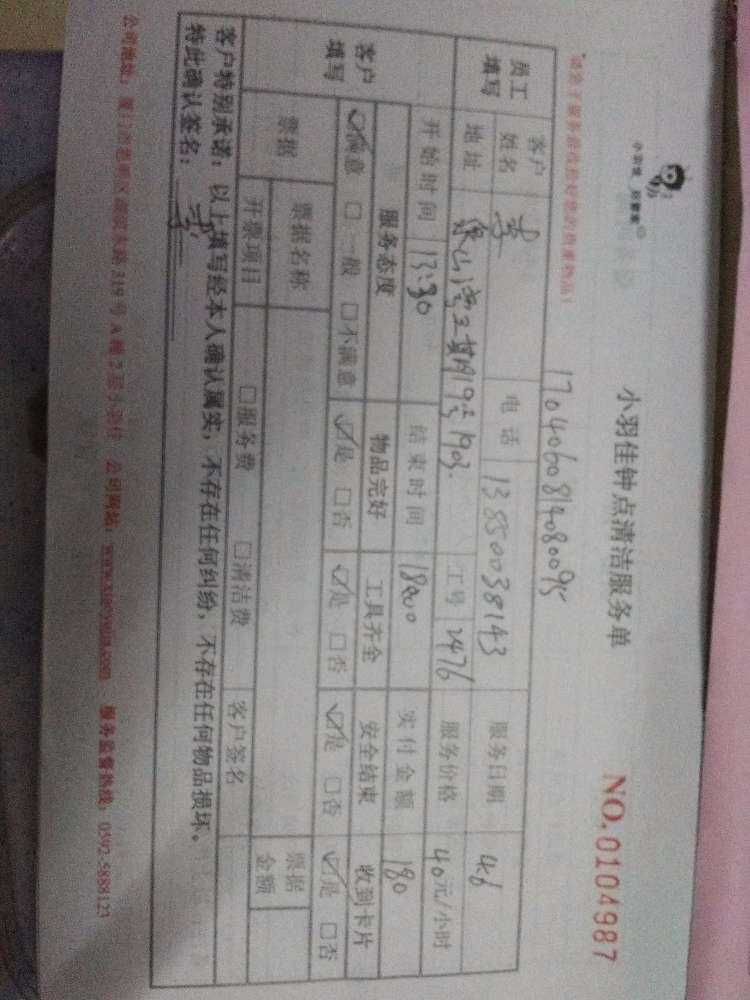 小羽佳钟点清洁服务单
NO.0104987
小羽佳 好管家
请您于服务前收拾好您的贵重物品!
1704060814080095
员工填写 客户姓名 李 电话 13850038143 服务日期 4.6
地址 工号 2476 服务价格 40元/小时
开始时间 13:30 结束时间 18:00 实付金额 180
客户填写 服务态度 物品完好 工具齐全 安全结束 收到卡片
☑满意 □一般 □不满意 ☑是 □否 ☑是 □否 ☑是 □否 ☑是 □否
票据 票据名称 票据金额
开票项目 □服务费 □清洁费 客户签名
客户特别承诺:以上填写经本人确认属实,不存在任何纠纷,不存在任何物品损坏。
特此确认签名: 李
319号A幢2层小羽佳 公司网站:www.xiaoyujia.com 服务监督热线:0592-5888123